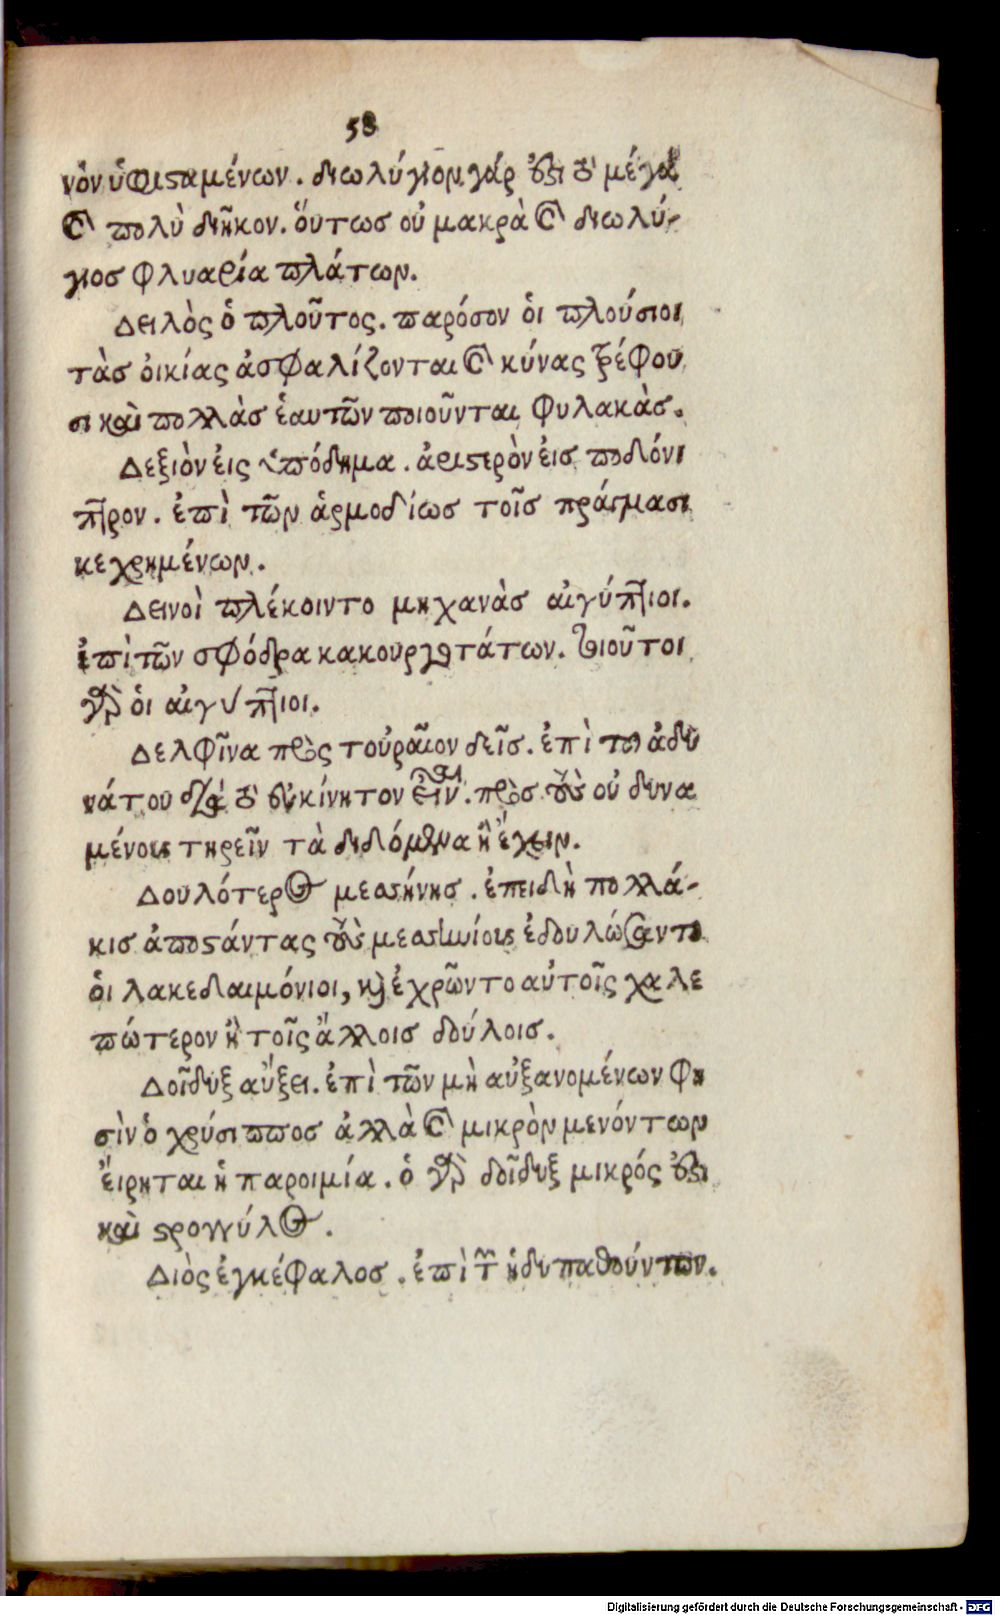 58
νὸν ὑφισταμένων. διωλύγιον γάρ ἐστι τὸ μέγα
καὶ πολὺ διῆκον. ὅυτωσ οὐ μακρὰ καὶ διωλύ-
γιοσ φλυαρία πλάτων.
Δειλὸς ὁ πλοῦτος. παρόσον ὁι πλούσιοι
τὰσ ὀικίας ἀσφαλίζονται καὶ κύνας τρέφου
σι καὶ πολλὰσ ἑαυτῶν ποιοῦνται φυλακὰσ.
Δεξιὸν ἐις ὑπόδημα. ἀριστερὸν ἐισ ποδόνι
πτρον. ἐπὶ τῶν ἁρμοδίωσ τοῖσ πράγμασι
κεχρημένων.
Δεινοὶ πλέκοιντο μηχανὰσ αἰγύπτιοι.
ἐπὶ τῶν σφόδρα κακουργοτάτων. τοιοῦτοι
γὰρ ὁι αἰγύπτιοι.
Δελφῖνα πρὸς τοὐραῖον δεῖσ. ἐπὶ τοῦ ἀδυ
νάτου διὰ τὸ εὐκίνητον εἶναι. πρὸσ τοὺσ οὐ δυνα
μένους τηρεῖν τὰ διδόμενα ἢ ἔχειν.
Δουλότερος μεσήνησ. ἐπειδὴ πολλά-
κισ ἀποστάντας τοὺς μεσηνίους ἐδουλώσαντο
ὁι λακεδαιμόνιοι, καὶ ἐχρῶντο αὐτοῖς χαλε
πώτερον ἢ τοῖς ἄλλοισ δούλοισ.
Δοῖδυξ αὔξει. ἐπὶ τῶν μὴ αὐξανομένων φη
σὶν ὁ χρύσιππος ἀλλὰ καὶ μικρὸν μενόντων
ἔιρηται ἡ παροιμία. ὁ γὰρ δοῖδυξ μικρός ἐστι
καὶ στρογγύλος.
Διὸς ἐγκέφαλοσ. ἐπὶ τῶν ἡδυπαθούντων.
Digitalisierung gefördert durch die Deutsche Forschungsgemeinschaft - DFG